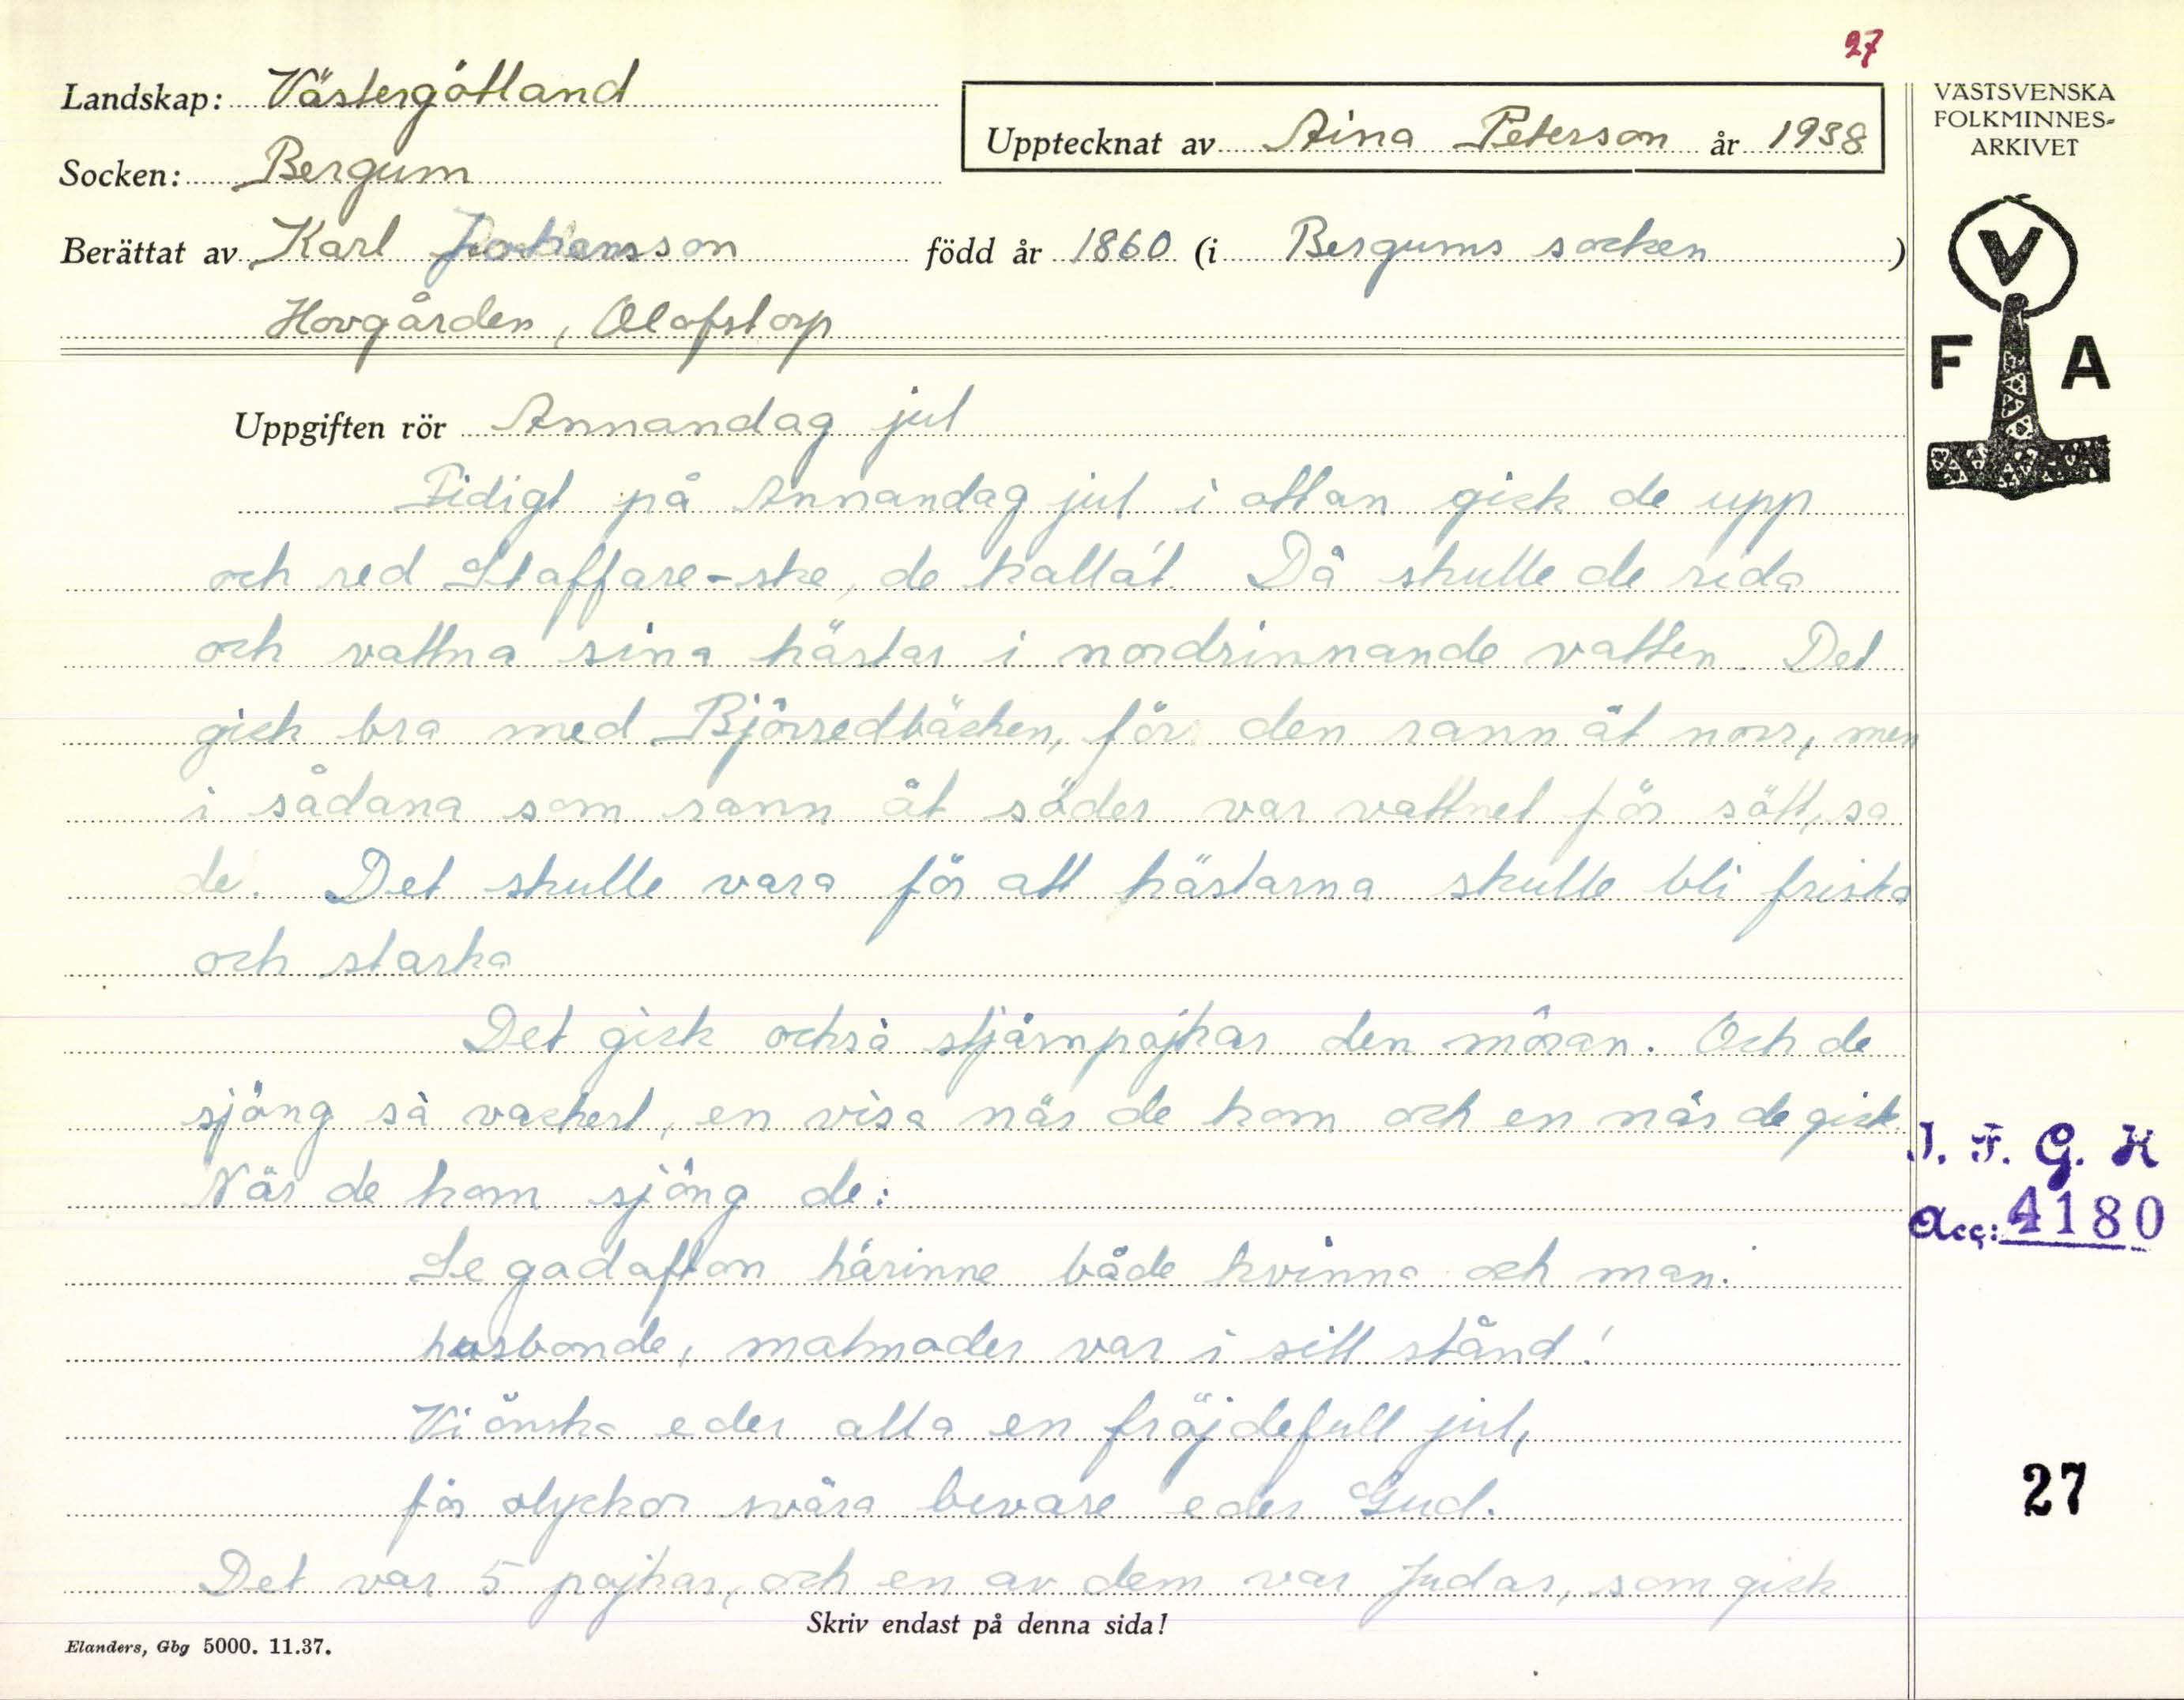 27
Landskap: Västergötland
Socken: Bergum
Upptecknat av Aina Peterson år 1938
Berättat av Karl Johansson född år 1860 (i Bergums socken)
Hovgården, Olofstorp
VÄSTSVENSKA
FOLKMINNES-
ARKIVET
V
F A
Uppgiften rör Annandag jul
Tidigt på Annandag jul i ottan gick de upp
och red Staffare-ske, de kalla't. Då skulle de rida
och vattna sina hästar i nordrinnande vatten. Det
gick bra med Björredbäcken, för den rann åt norr, men
i sådana som rann åt söder var vattnet för sött, sa
de. Det skulle vara för att hästarna skulle bli friska
och starka
Det gick också stjärnpojkar den måran. Och de
sjöng så vackert, en visa när de kom och en när de gick.
När de kom sjöng de:
Se godafton härinne både kvinna och man.
husbonde, matmoder var i sitt stånd!
Vi önska eder alla en fröjdefull jul,
för olyckor svåra bevare eder Gud.
Det var 5 pojkar, och en av dem var Judas, som gick
I. F. G. H
Acc: 4180
27
Skriv endast på denna sida!
Elanders, Gbg 5000. 11.37.